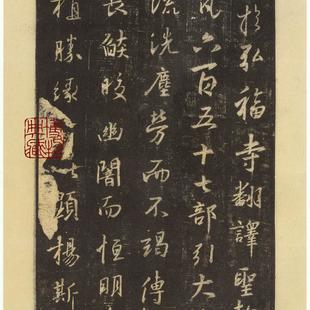 於弘福寺翻譯聖教
凡六百五十七部引大
流洗塵勞而不竭傳
長燄皎幽闇而恒明
植勝緣顯揚斯